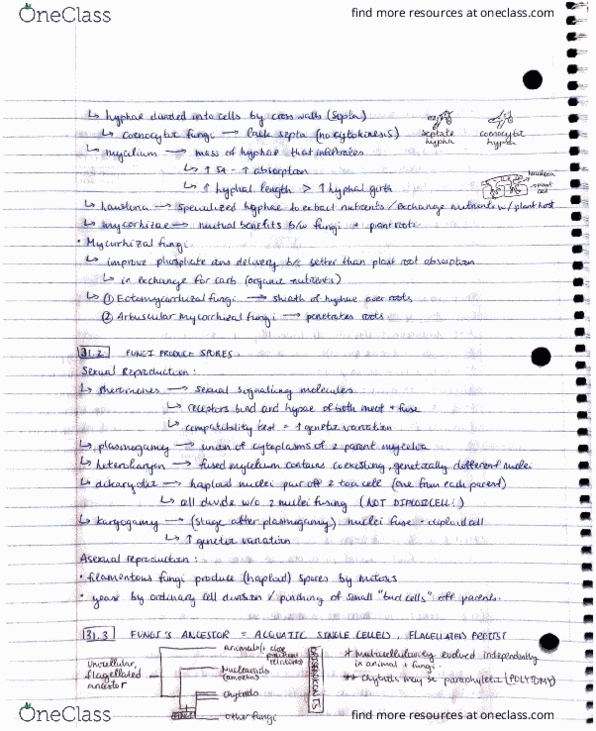 OneClass
find more resources at oneclass.com
↳ hyphae divided into cells by cross walls (septa)
↳ coenocytic fungi → lack septa (no cytokinesis)
septate hypha
coenocytic hypha
↳ mycelium → mass of hyphae that infiltrates
↳ ↑ SA - ↑ absorption
↳ ↑ hyphal length > ↑ hyphal girth
haustoria
plant cell
↳ haustoria → specialized hyphae to extract nutrients / exchange nutrients w/ plant host
↳ mycorrhizae → mutual benefits b/w fungi + plant roots
• Mycorrhizal fungi
↳ improve phosphate ions delivery b/c better than plant root absorption
↳ in exchange for carb (organic nutrients)
↳ ① Ectomycorrhizal fungi → sheath of hyphae over roots
② Arbuscular mycorrhizal fungi → penetrates roots
31.2 FUNGI PRODUCE SPORES.
Sexual Reproduction:
↳ pheromones → sexual signaling molecules
↳ receptors bind and hypae of both meet + fuse
↳ compatability test = ↑ genetic variation
↳ plasmogamy → union of cytoplasms of 2 parent mycelia
↳ heterokaryon → fused mycelium contains coexisting, genetically different nuclei
↳ dikaryotic → haploid nuclei pair off 2 to a cell (one from each parent)
↳ cell divide w/o 2 nuclei fusing (NOT DIPLOID CELL!)
↳ karyogamy → (stage after plasmogamy) nuclei fuse = diploid cell
↳ ↑ genetic variation
Asexual reproduction:
• filamentous fungi produce (haploid) spores by mitosis
• yeast by ordinary cell division / pinching of small "bud cells" off parents.
31.3 FUNGI'S ANCESTOR = AQUATIC SINGLE CELLED, FLAGELLATED PROTIST
Unicellular, flagellated ancestor
animals (+ close relatives)
Nucleariids (amoebas)
chytrids
other fungi
OPISTHOKONTS
* multicellularity evolved independently in animal + fungi.
** chytrids may be paraphyletic (POLYTOMY)
OneClass
find more resources at oneclass.com